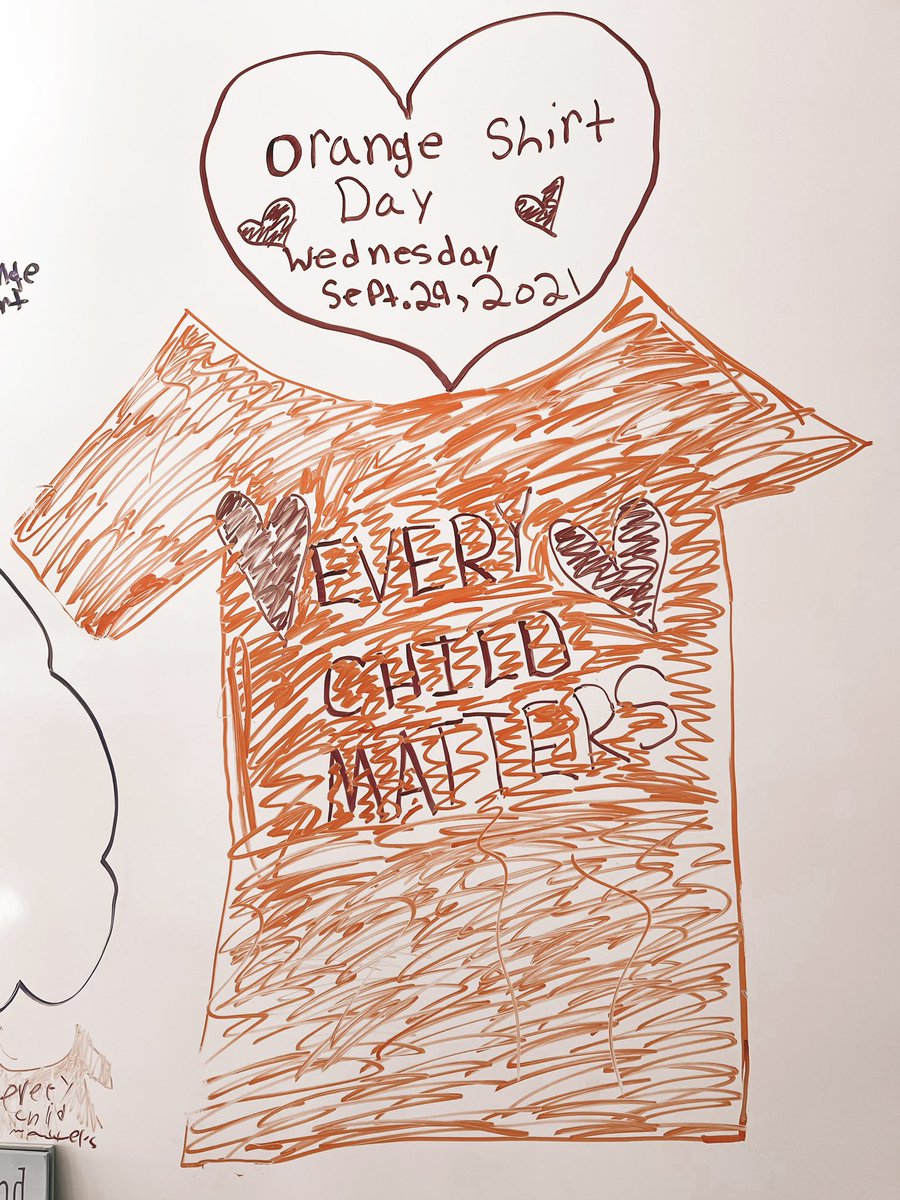 Orange Shirt
Day
Wednesday
Sept. 29, 2021
EVERY
CHILD
MATTERS
every
child
matters